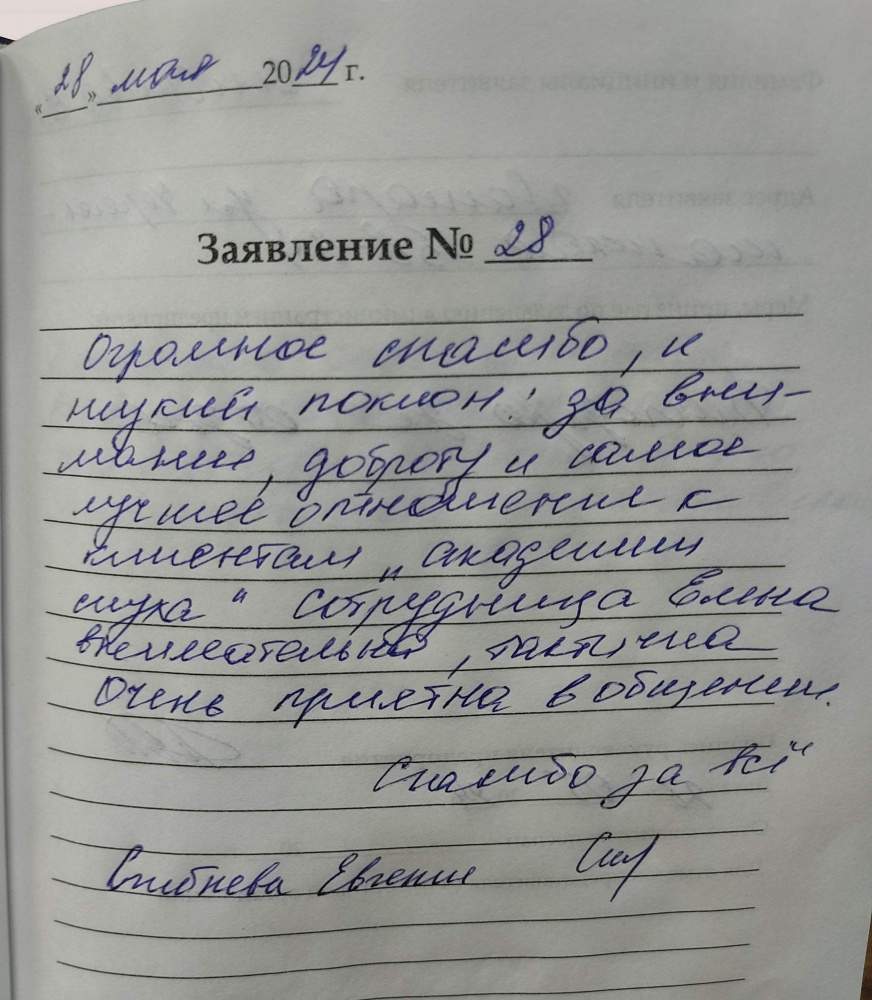 «28» мая 2024 г.
Заявление № 28
Огромное спасибо, и
низкий поклон! за вни-
мание, доброту и самое
лучшее отношение к
клиентам „академии
слуха" сотрудница Елена
внимательна, тактична
Очень приятна в общении.
Спасибо за всё"
Евгения